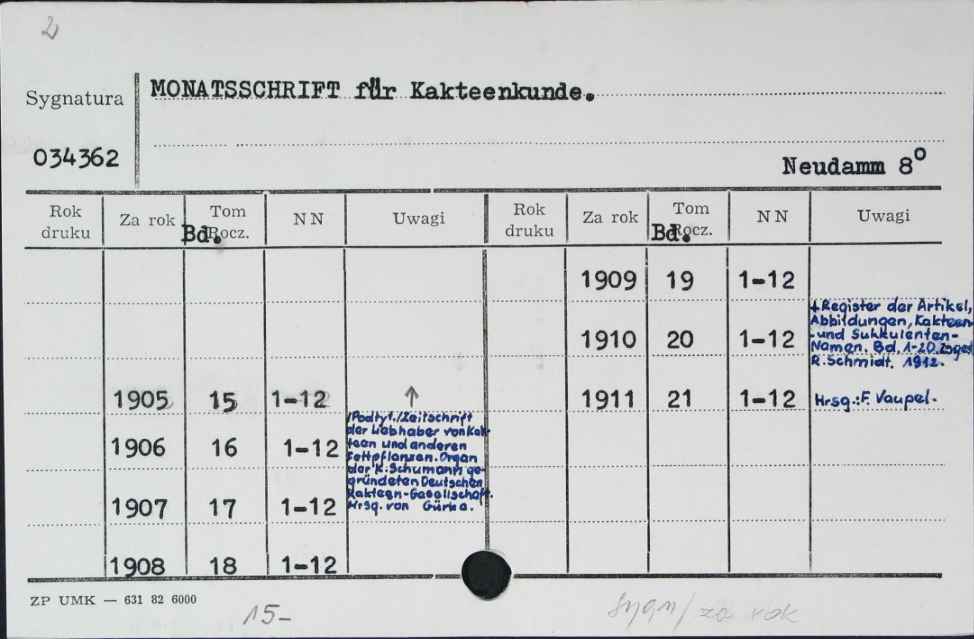 2
Sygnatura
MONATSSCHRIFT für Kakteenkunde.
034362
Neudamm 8°
Rok druku Za rok Tom Rocz. Bd. NN Uwagi Rok druku Za rok Tom Rocz. Bd. NN Uwagi
1909 19 1-12
1910 20 1-12 + Register der Artikel,
Abbildungen, Kakteen-
-und Sukkulenten-
Namen. Bd. 1-20. Zsgst.
R. Schmidt. 1912.
1905 15 1-12 ↑
1911 21 1-12 Hrsg.: F. Vaupel.
/Podtyt./Zeitschrift
der Liebhaber von Kak-
teen und anderen
Fettpflanzen. Organ
der K. Schumann ge-
gründeten Deutschen
Kakteen-Gesellschaft.
Hrsg. von Gürke.
1906 16 1-12
1907 17 1-12
1908 18 1-12
ZP UMK — 631 82 6000
15-
sygn/ za rok